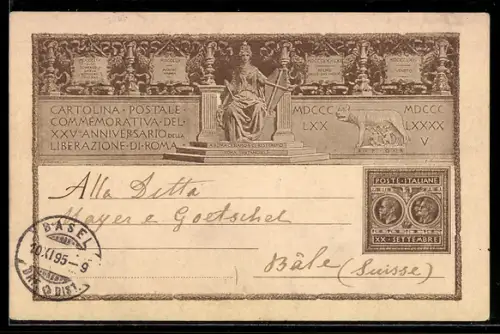 CARTOLINA · POSTALE
COMMEMORATIVA · DEL
XXV° ANNIVERSARIO DELLA
LIBERAZIONE · DI · ROMA
MDCCC
LXX
MDCCC
LXXXX
V
POSTE · ITALIANE
XX · SETTEMBRE
Alla Ditta
Mayer e Goetschel
Bâle (Suisse)
BASEL
10.XI.95-9